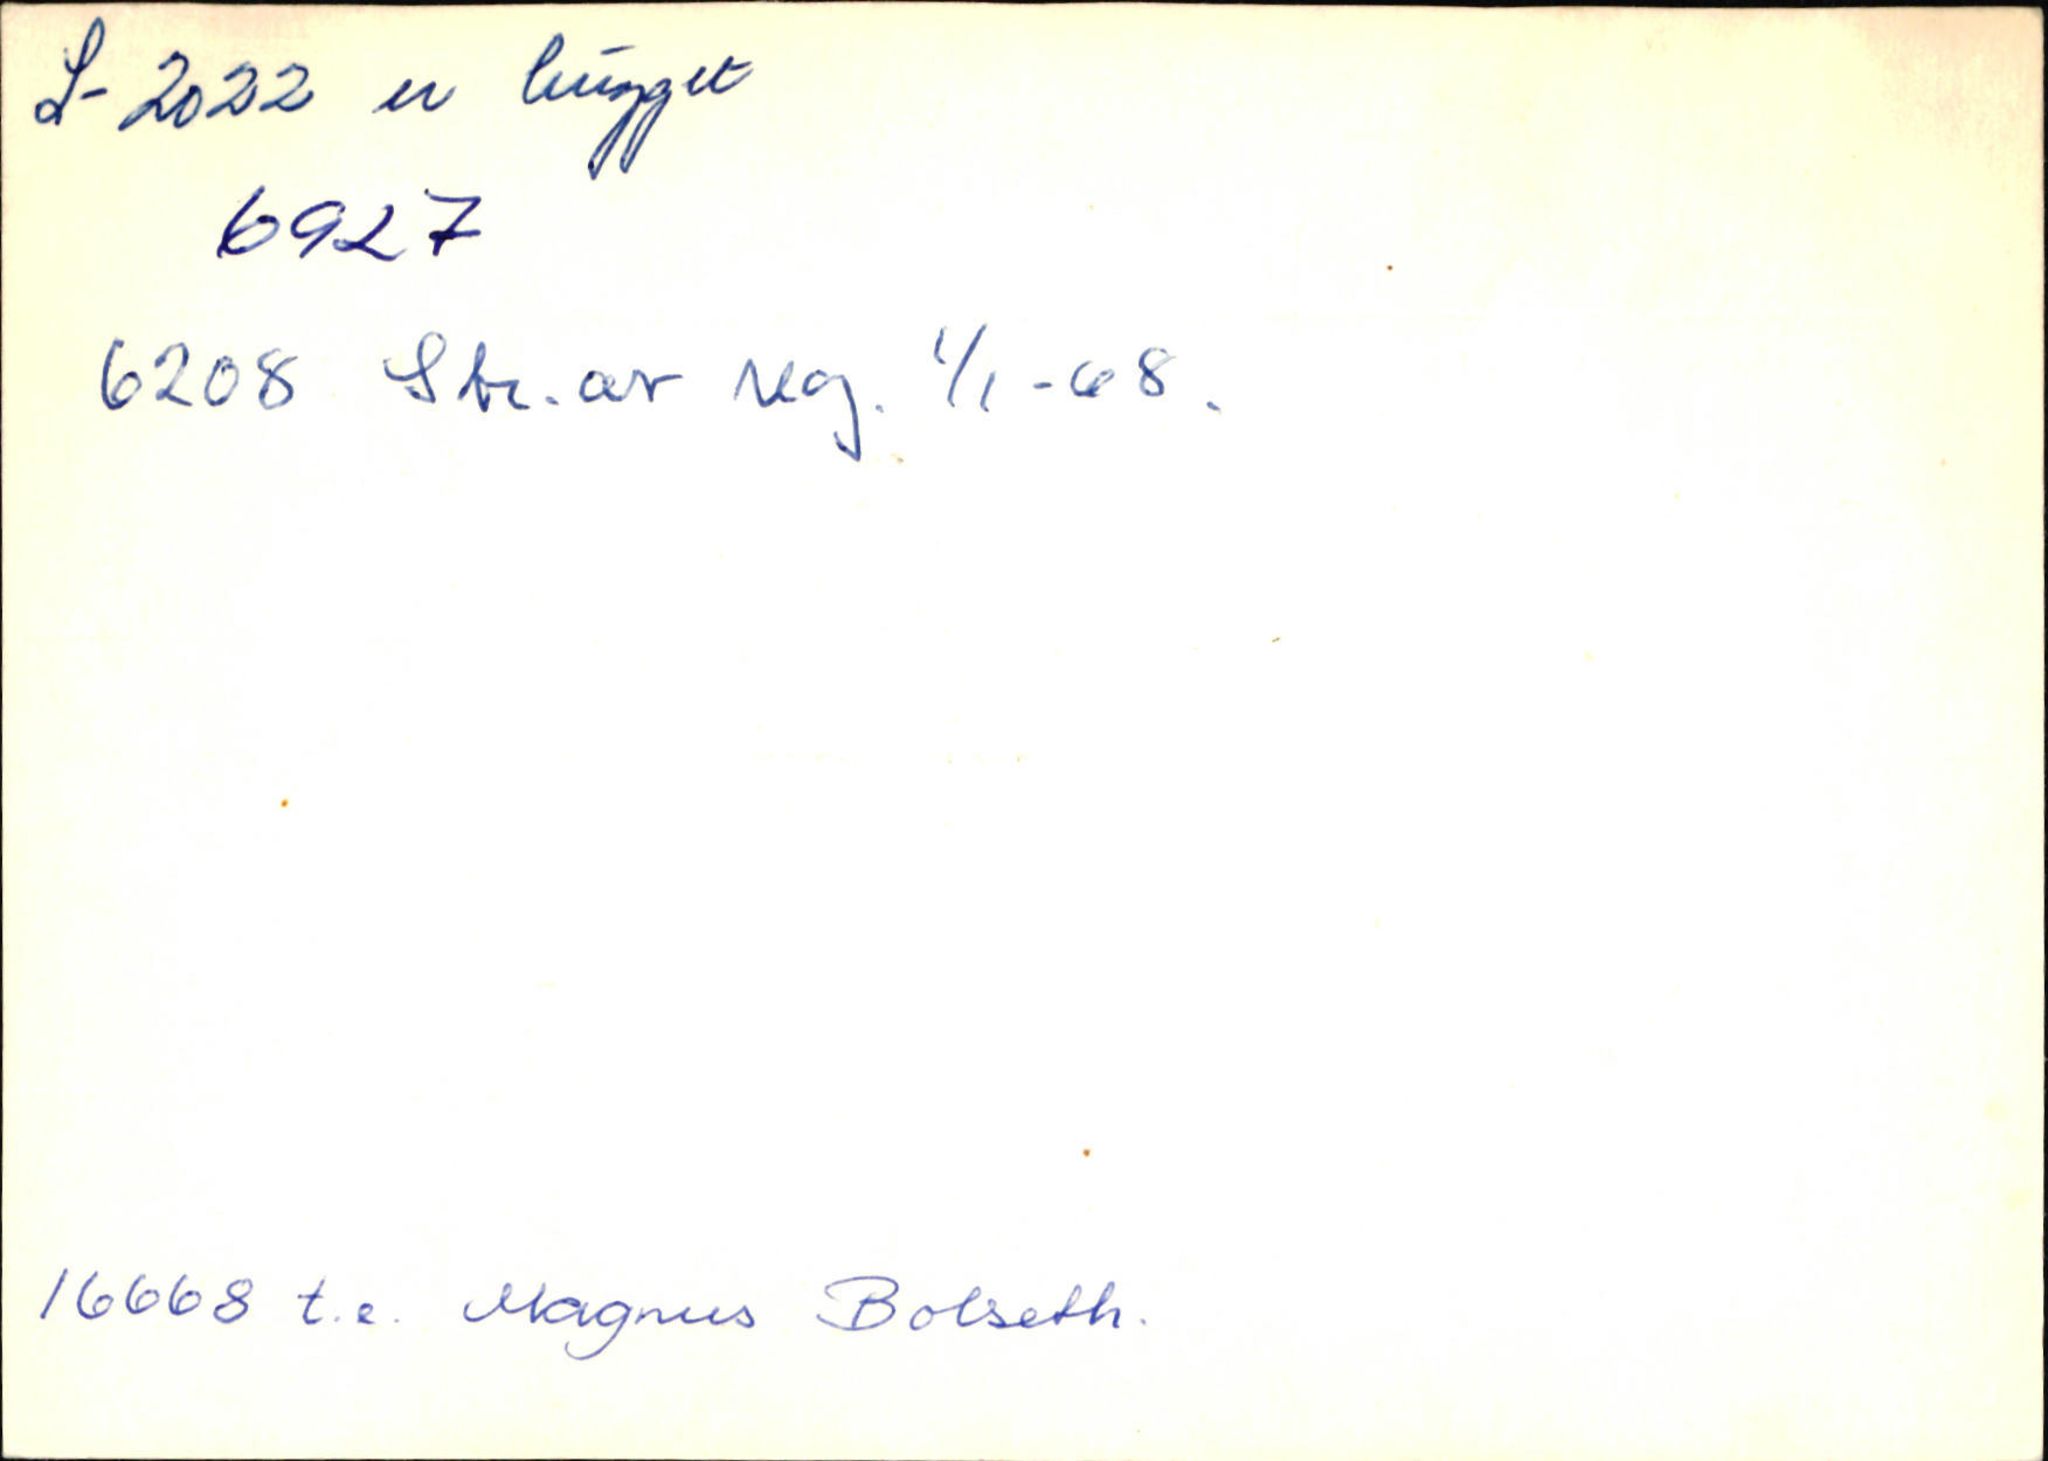 S-2022 er hugget
6927
6208 Str. av reg. 1/1-68.
16668 t.e. Magnus Bolseth.